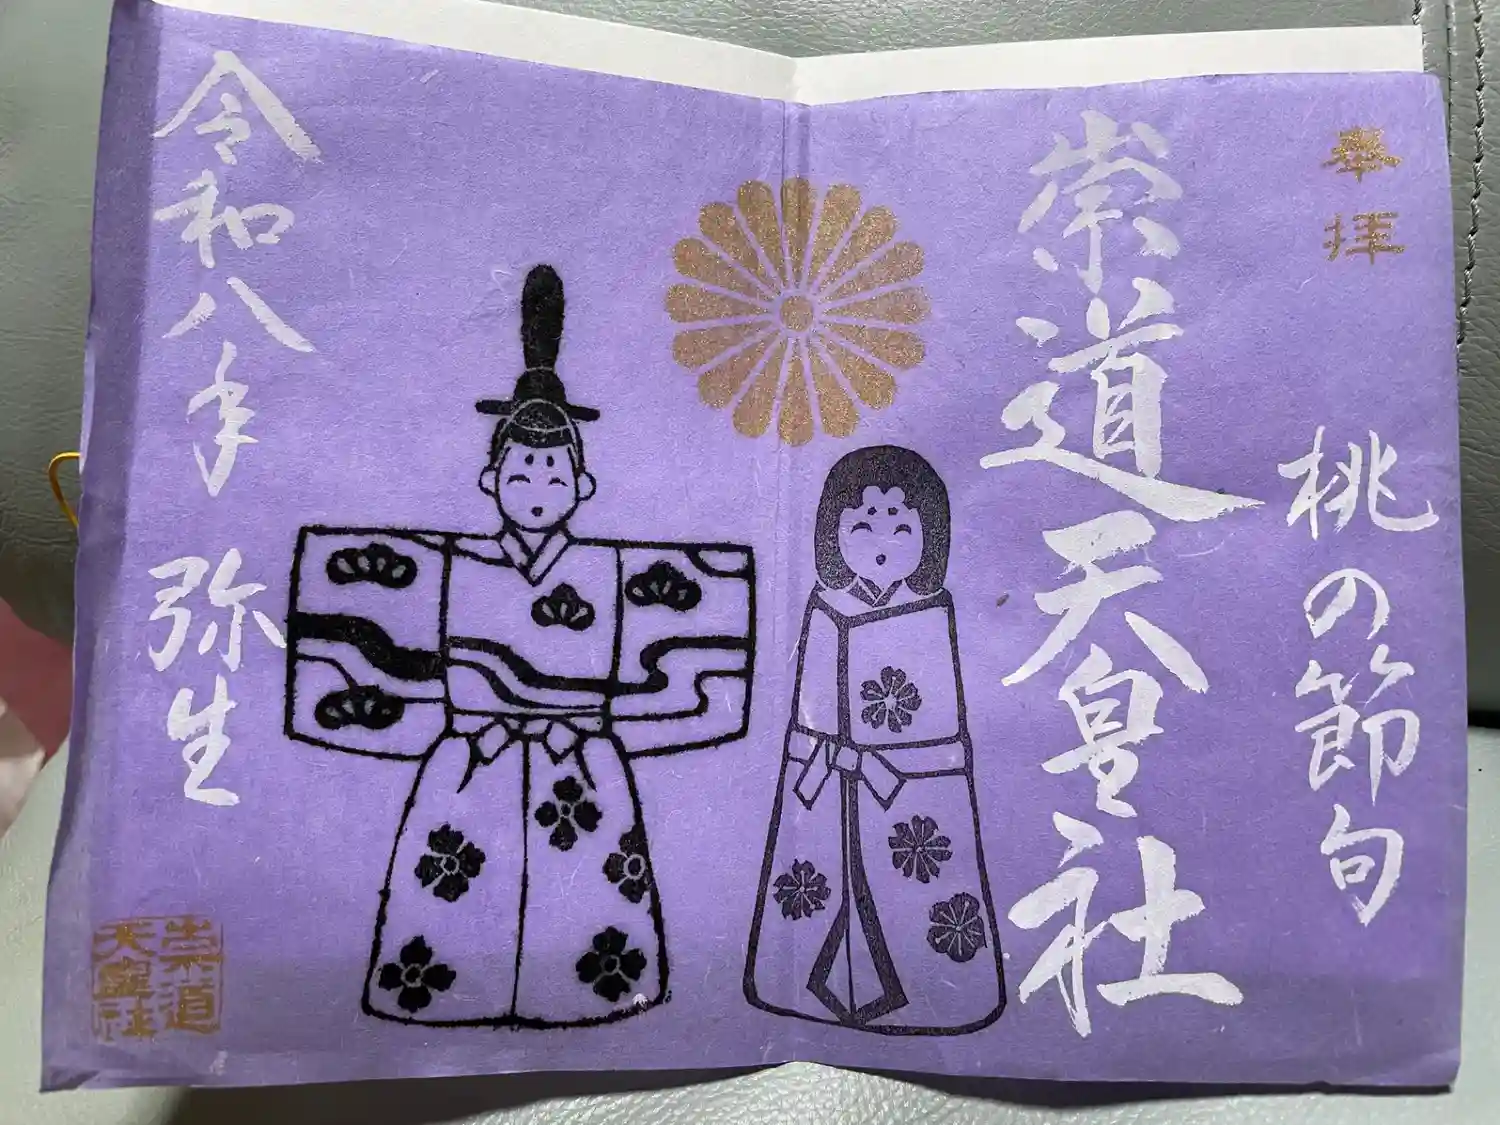 奉拝
桃の節句
崇道天皇社
令和八年 弥生
崇道
天皇社